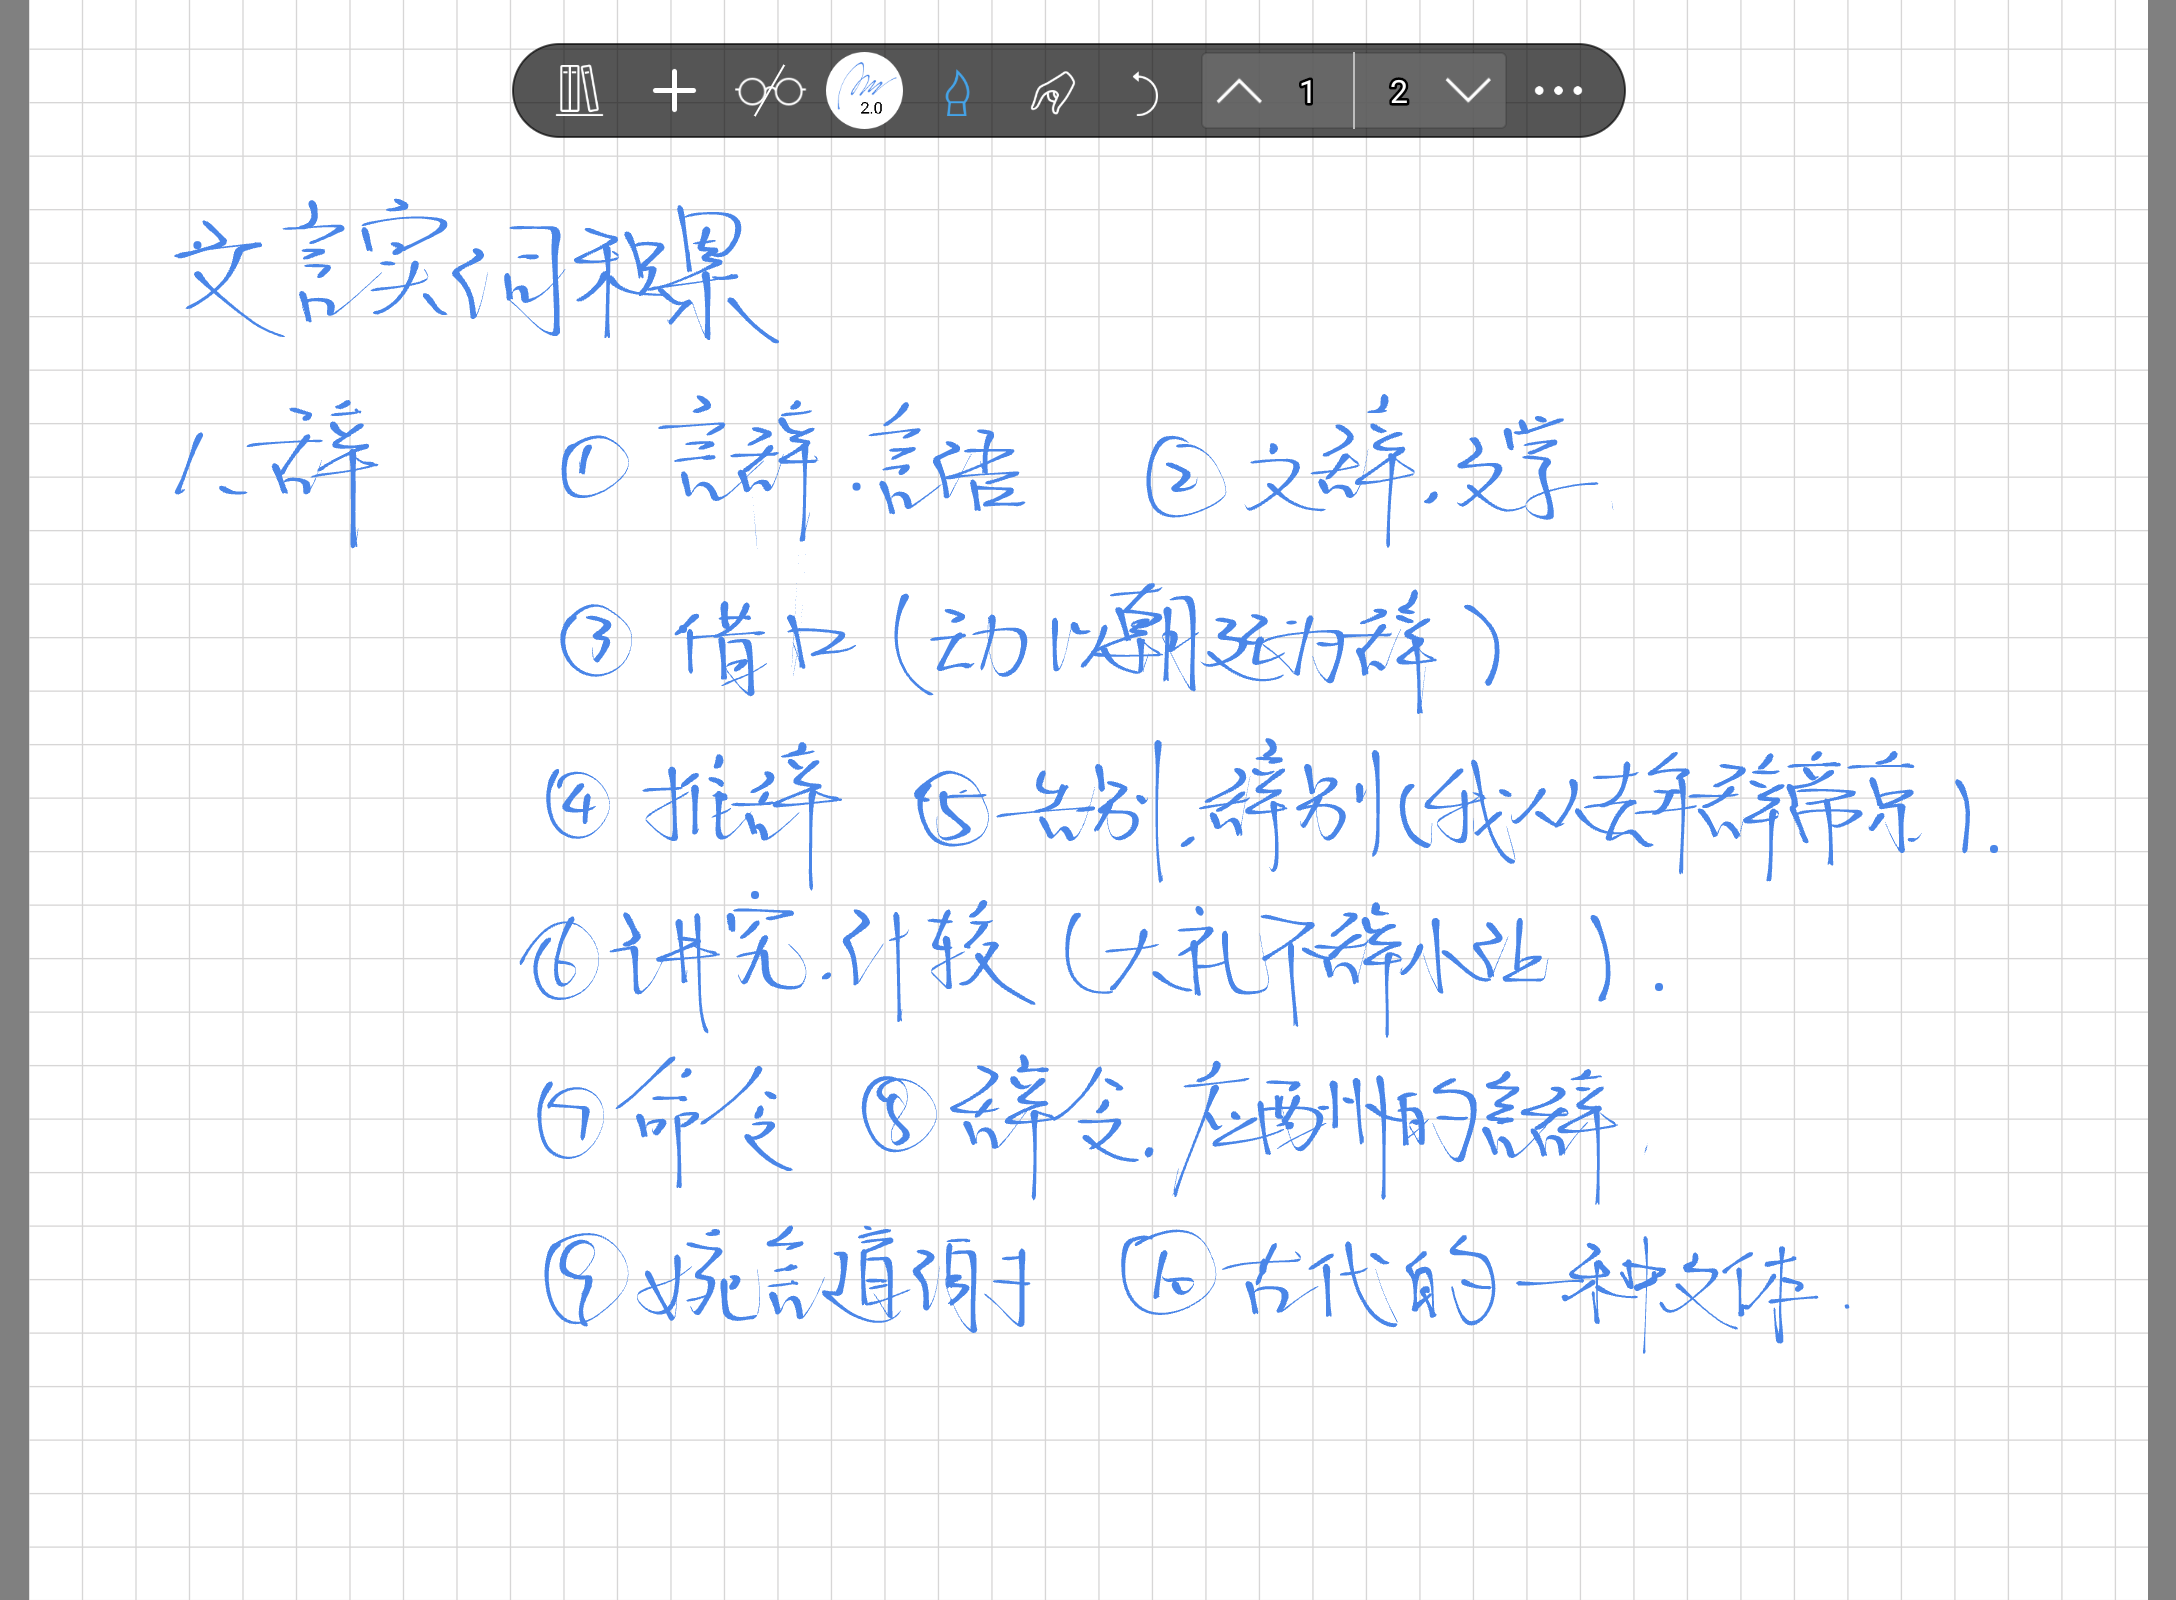 2.0
1 2
文言实词积累
1、辞 ① 言辞.言语 ② 文辞.文学
③ 借口(动以朝廷为辞)
④ 推辞 ⑤ 告别.辞别(我从去年辞帝京).
⑥ 讲究.计较(大礼不辞小让).
⑦ 命令 ⑧ 辞令.应酬的言辞.
⑨ 婉言道谢 ⑩ 古代的一种文体.